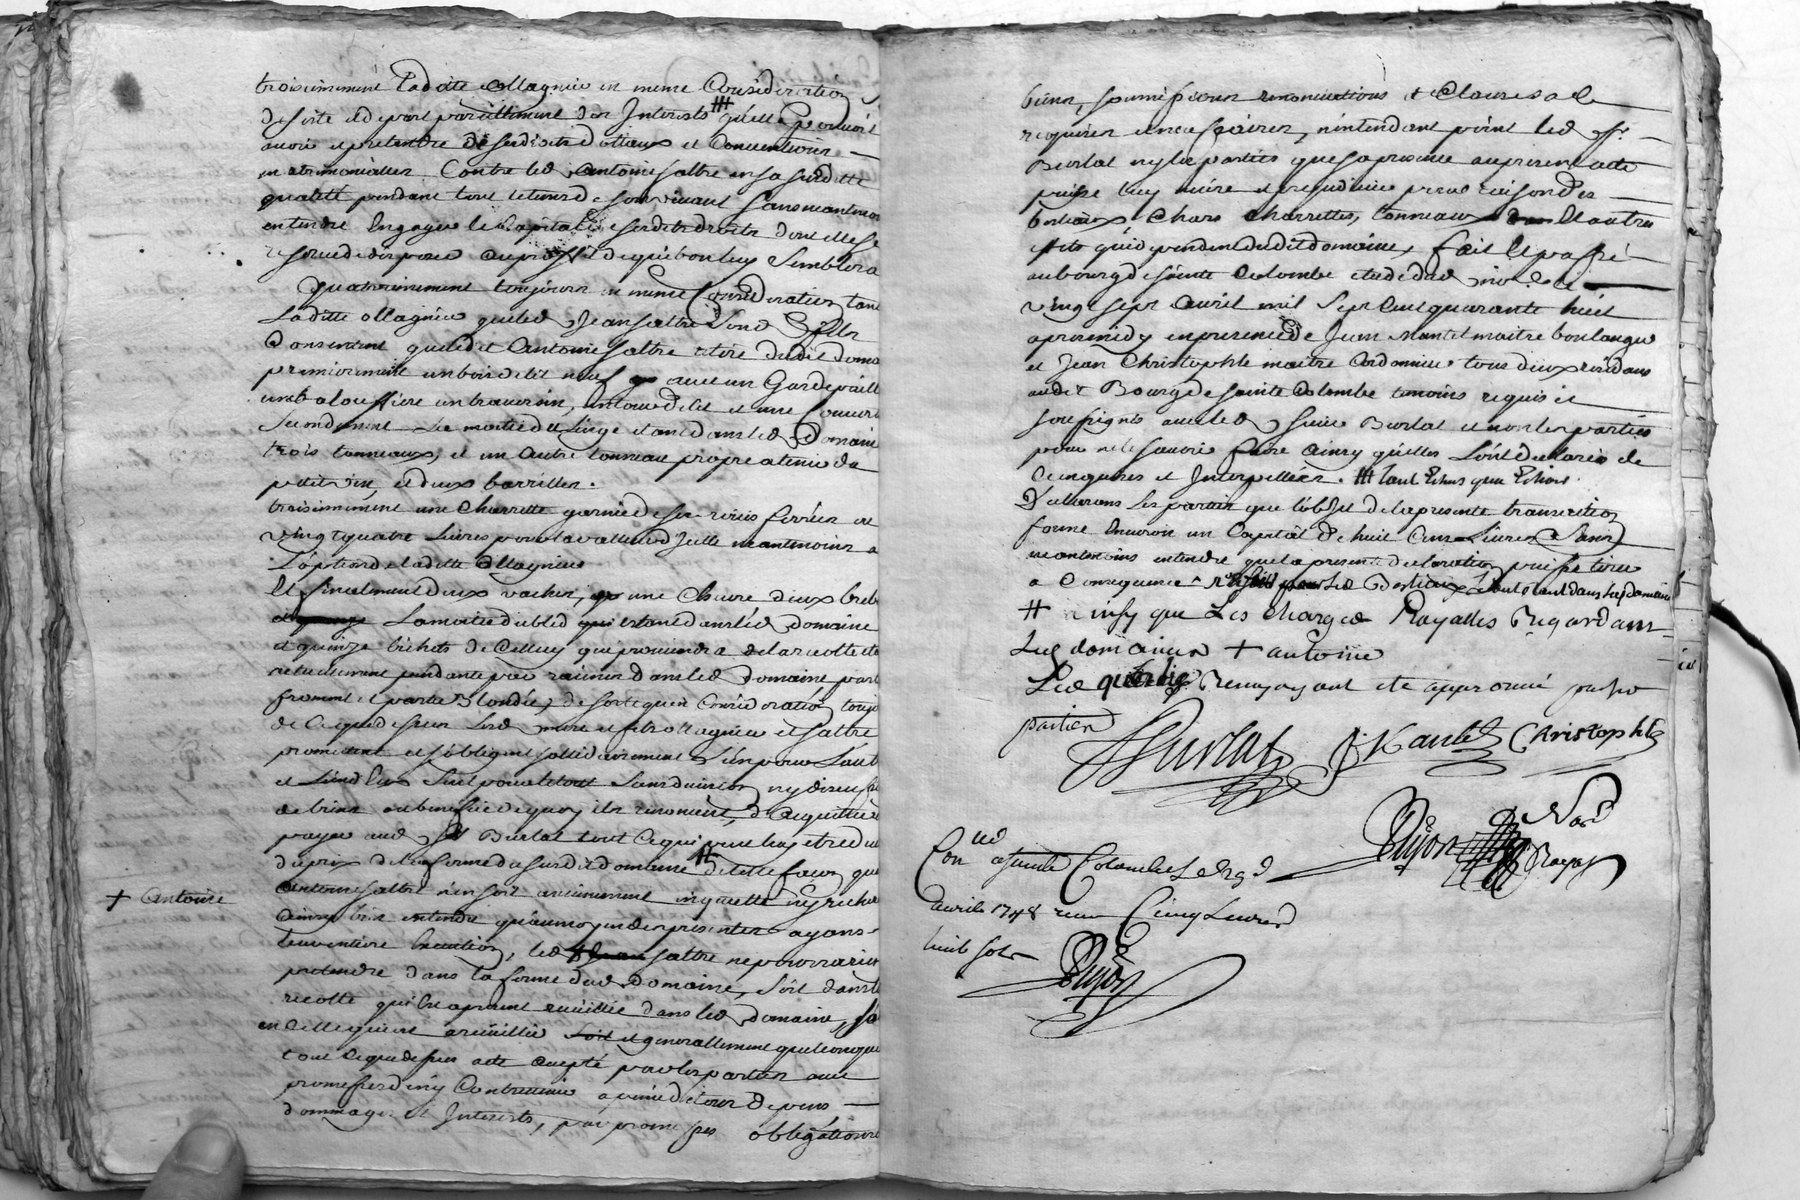 troisiemement Ladite Magnien en meme Consideration
desiste et depart pareillement des Interests ⧻ quelle pourroit
avoir et pretendre de sesdits dottaux et Conventions
matrimonialles Contre led Antoine sattre en sa susditte
qualité pendant tout le tems de son vivant sans neantmoins
entendre Engager le Capital desesdits droits dont elle se
reserve de disposer au proffit de qui bon luy Semblera
Quatriemement toujours en meme Consideration tant
Laditte Magnien que led Jean sattre Son Fils
Consentent que ledit Antoine sattre retire dudit doma
premierement un bois de lit neuf avec un Gardepaille
une baloussiere un traversin, un tour de lit et une Couvert
Secondement La moitié du Linge etant dans led Domaine
trois tonneaux, et un autre tonneau propre a tenir du
petit vin, et deux barrilles.
troisiemement une Charrette garnie de ses roües ferrées ou
vingt quatre Livres pour la valleur d'icelle neantmoins a
L'option de laditte Magnien
Et finalement deux vaches, une Chevre deux breb
La moitié du bled qui est dans led Domaine
et quinze bichets de Celluy qui proviendra de la recolte
actuellement pendante par racines dans led Domaine, part
froment et partie Blondée, de sorte qu'en Consideration toujo
de Ce que dessus Lesd mere et fils Magnien et sattre
promettent et s'obligent sollidairement L'un pour L'aut
et L'un d'Eux Seul pour le tout Sans division ny discussi
de biens au benefice de quoy ils renoncent, d'acquitter
payer aud Sr Burlat tout Ce qui peut luy etre du
du prix de la ferme du susdit domaine ⧺ de telle facon que
Antoine sattre n'en soit aucunement inquietté ny recherc
+ Antoine
Ainsy bien entendre qu'au moyen des presentes ayans
leur entiere Execution, led sattre ne pourra rien
pretendre dans la ferme dud Domaine, soit dans la
recolte qui est a present dans led Domaine, soit
en Celle qui sera recüeillie et generallement quelconque
tout Ce que dessus acte accepté par les parties avec
promesses de n'y Contrevenir a peine de tous depens
dommages et Interests, par promesses obligations
biens, soumissions renonciations et Clauses a ce
requises et necessaires, n'entendant point led Sr
Burlat ny les parties que sa presence au present acte
puisse luy nuire et prejudicier pour raison des
bestiaux Chars Charrettes, tonneaux Et autres
effets qui dependent dudit domaine, fait Et passé
au bourg de Sainte Colombe etude dud no.re Le
vingt sept avril mil Sept Cent quarante huit
apres midy en presence de Jean Mantel maitre boulanger
et Jean Christophle maitre Cordonnier tous deux residans
audit Bourg de Sainte Colombe temoins requis et
soussignés avec led Sieur Burlat et non les parties
pour ne le sçavoir faire ainsy qu'elles L'ont declaré de
Ce enquises et Interpellées. ⧻ tant Echus que Echoir.
Declarans Les parties que l'objet de la presente transaction
forme Environ un Capital De huit Cens Livres Sans
neantmoins entendre que la presente declaration puisse tirer
a Consequence pour les Bestiaux Etant dans led domaine
⧺ ainsy que Les charges Royalles Regardant
Led domaine + antoine
Led Renvoyant ete approuvé par les
parties
Burlat J Mantel Christophle
Dujon No.re Royal
Con.llé a Sainte Colombe Le 29e
avril 1748 reçu Cinq Livres
huit sols
Dujon